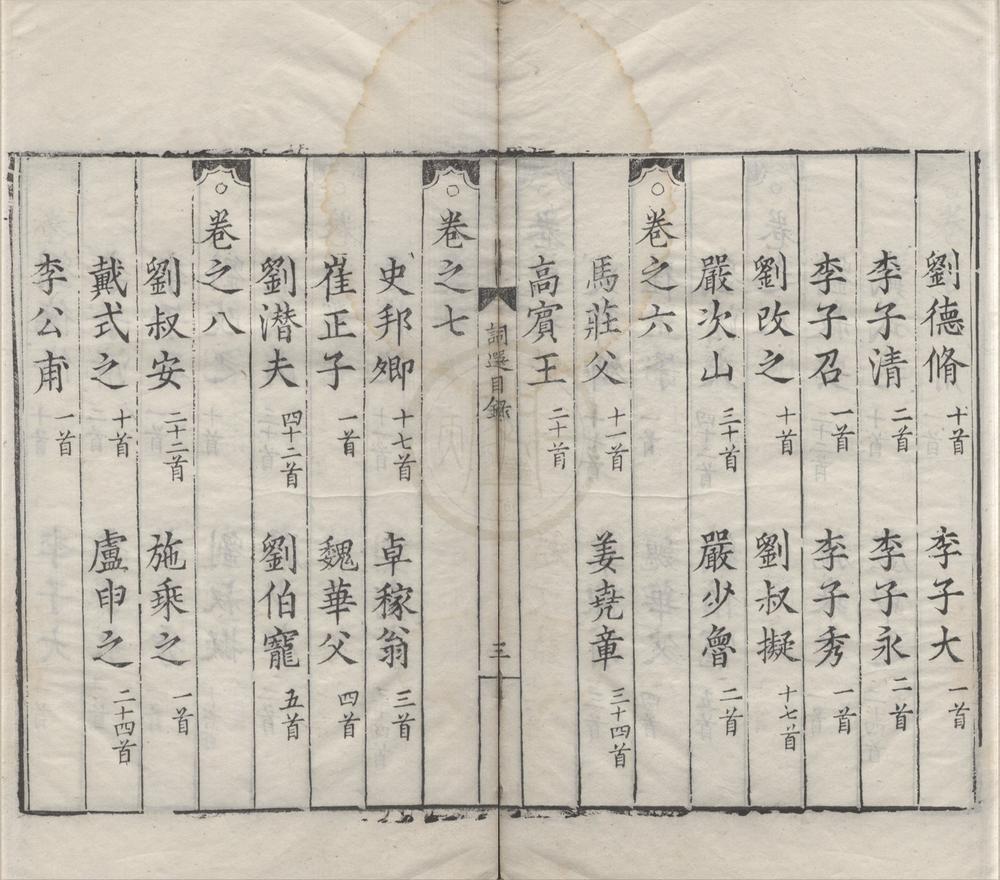 劉德脩 十首 李子大 一首
李子清 二首 李子永 二首
李子召 一首 李子秀 一首
劉改之 十首 劉叔擬 十七首
嚴次山 三十首 嚴少魯 二首
卷之六
馬莊父 十一首 姜堯章 三十四首
高賓王 二十首
詞選目録 三
卷之七
史邦卿 十七首 卓稼翁 三首
崔正子 一首 魏華父 四首
劉潛夫 四十二首 劉伯寵 五首
卷之八
劉叔安 二十二首 施乘之 一首
戴式之 十首 盧申之 二十四首
李公甫 一首